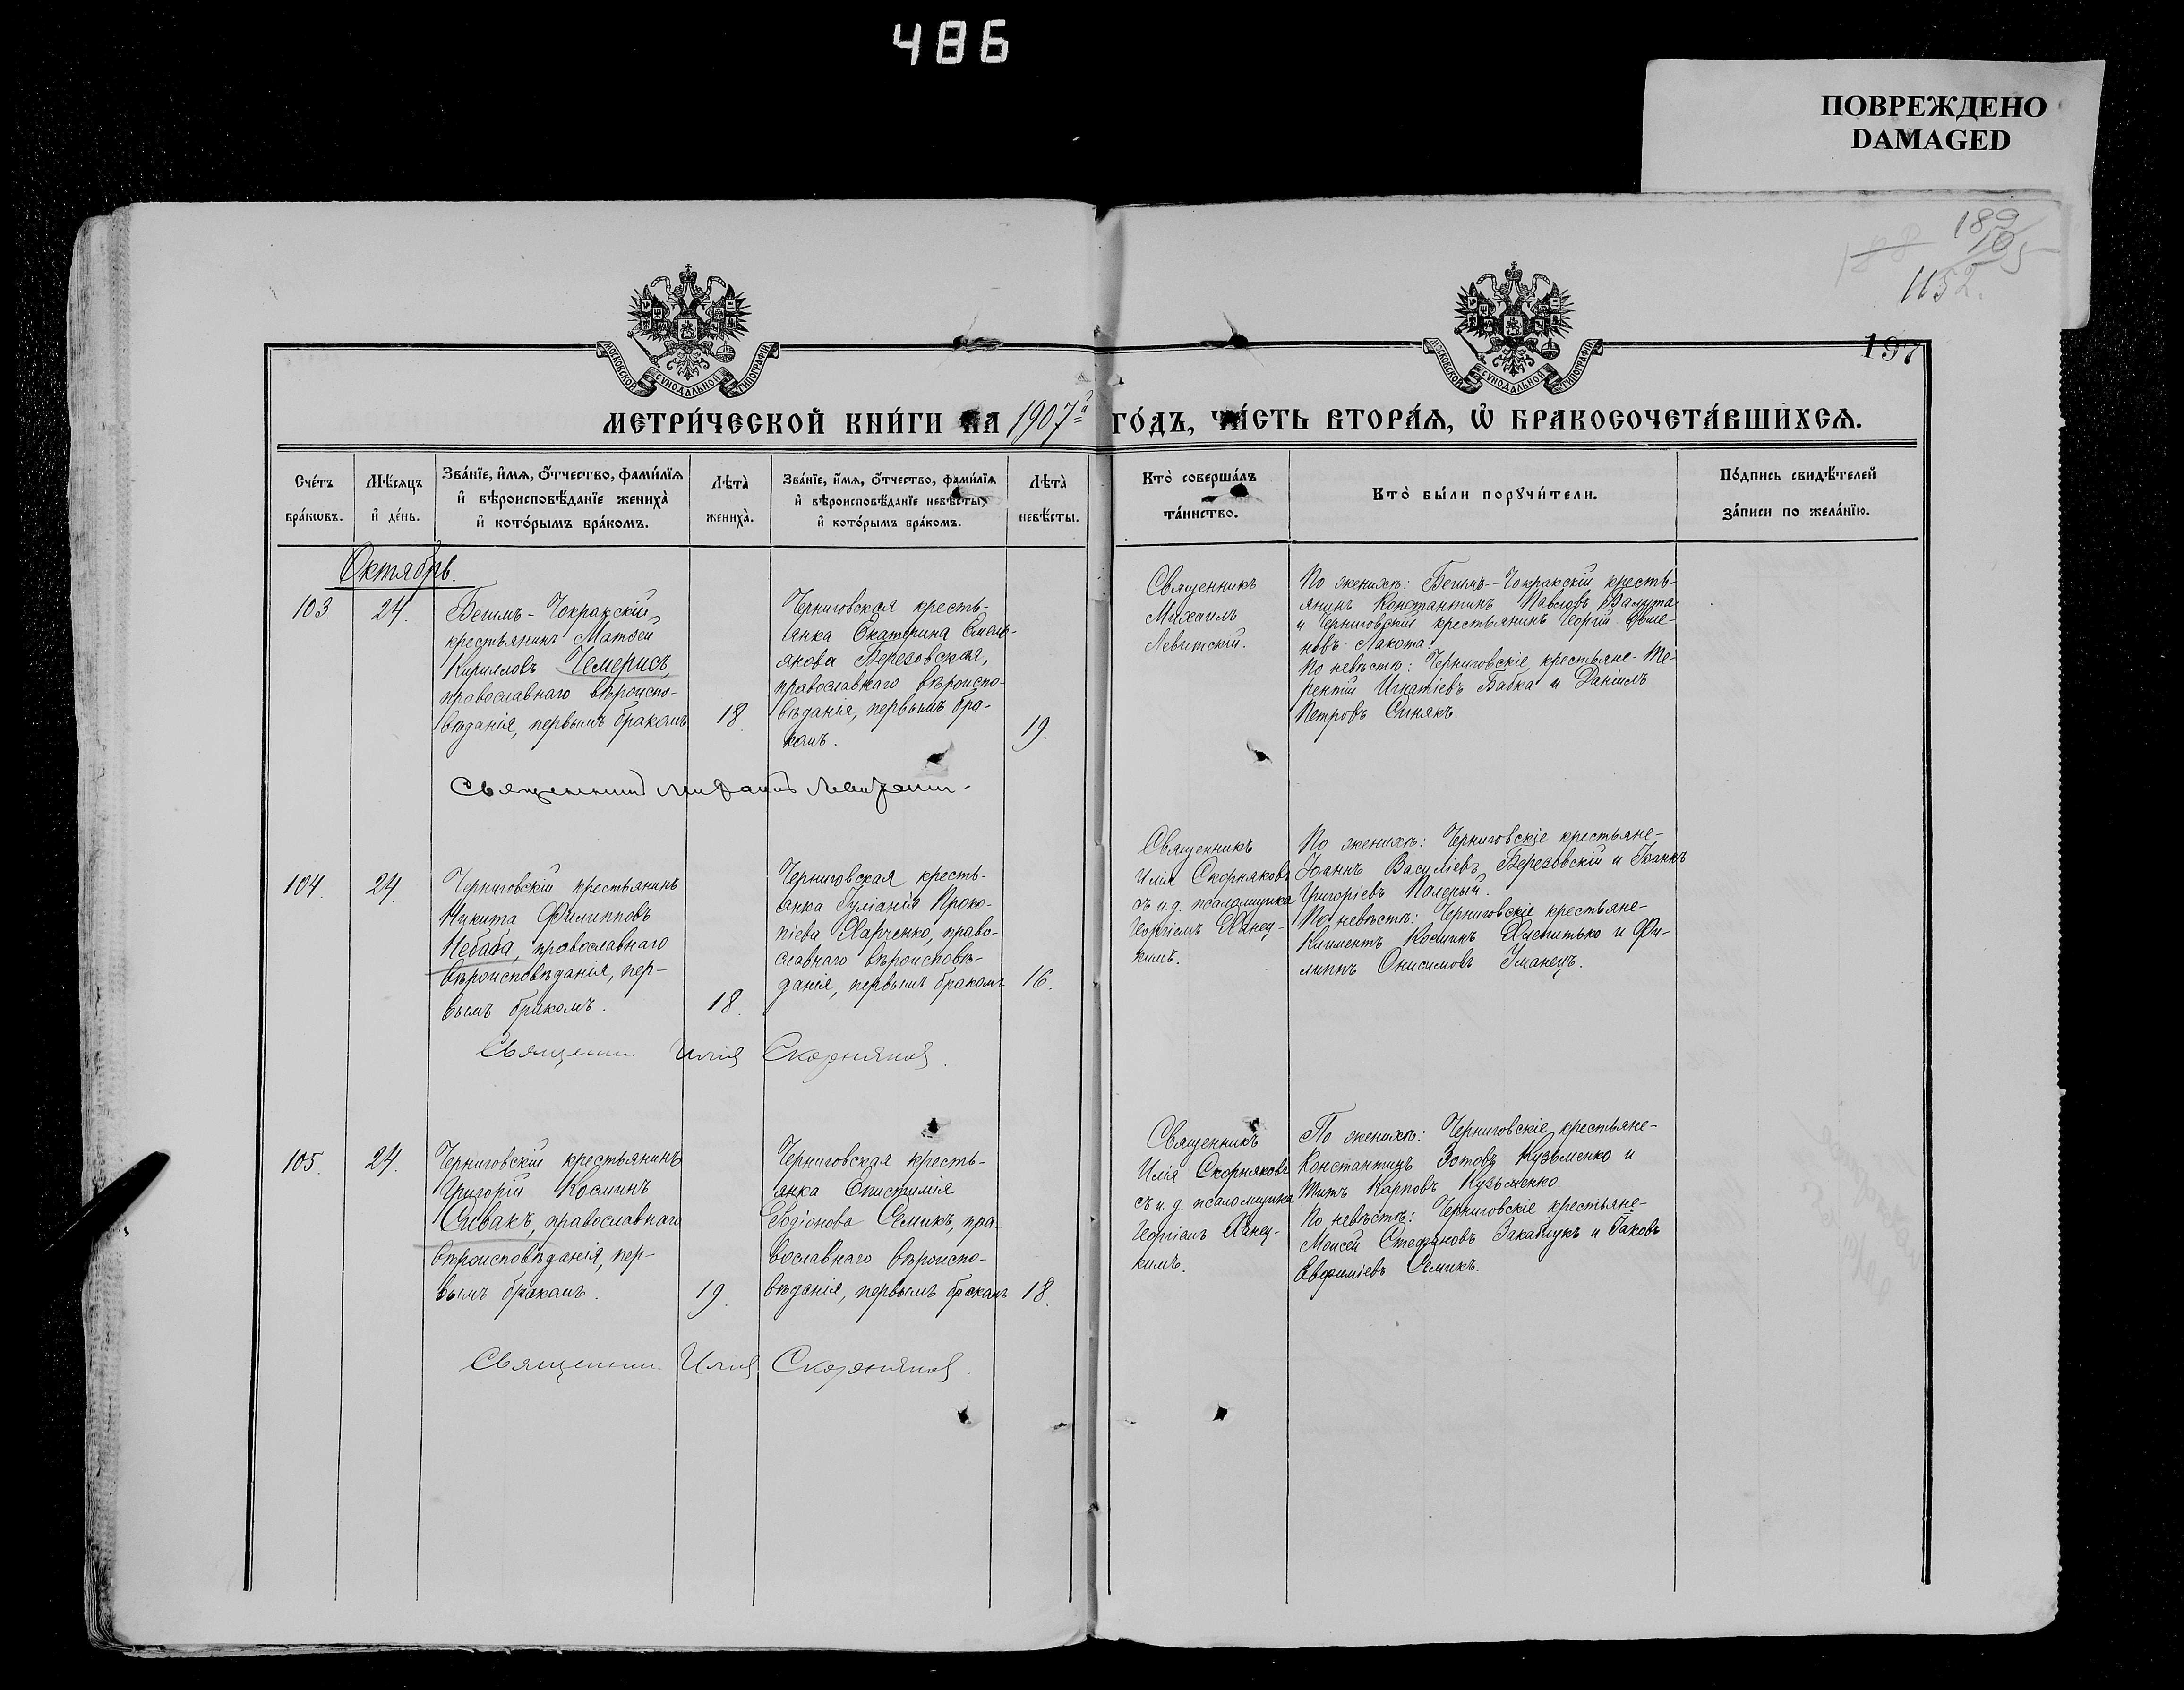 486
ПОВРЕЖДЕНО
DAMAGED
188
189
105
1152.
197
МОСКОВСКОЙ СѴНОДАЛЬНОЙ ТИПОГРАФІИ
МОСКОВСКОЙ СѴНОДАЛЬНОЙ ТИПОГРАФІИ
МЕТРИ́ЧЕСКОЙ КНИ́ГИ НА 1907й ГО́ДЪ, ЧА́СТЬ ВТОРА́Ѧ, Ѡ҆ БРАКОСОЧЕТА́ВШИХСѦ.
Сче́тъ
бра́кѡвъ.
Мѣ́сѧцъ
и҆ де́нь.
Зва́нїе, и҆́мѧ, ѻ҆́тчество, фами́лїѧ
и҆ вѣроисповѣ́данїе жениха̀
и҆ кото́рымъ бра́комъ.
Лѣта̀
жениха̀.
Зва́нїе, и҆́мѧ, ѻ҆́тчество, фами́лїѧ
и҆ вѣроисповѣ́данїе невѣ́сты,
и҆ кото́рымъ бра́комъ.
Лѣта̀
невѣ́сты.
Кто̀ соверша́лъ
та́инство.
Кто̀ бы́ли порꙋчи́тели.
По́дпись свидѣ́телей
за́писи по жела́нїю.
Октябрь.
103.
24.
Бегимъ-Чокракскій
крестьянинъ Матѳей
Кирилловъ Чемерисъ,
православнаго вѣроиспо-
вѣданія, первымъ бракомъ
18.
Черниговская кресть-
янка Екатерина Емель-
янова Березовская,
православнаго вѣроиспо-
вѣданія, первымъ бра-
комъ.
19.
Священникъ
Михаилъ
Левитскій.
По женихѣ: Бегимъ-Чокракскій кресть-
янинъ Константинъ Павловъ
и Черниговскій крестьянинъ Георгій
новъ Лакота.
По невѣстѣ: Черниговскіе крестьяне- Те-
рентій Игнатіевъ Бабка и Даніилъ
Петровъ Синякъ.
Священникъ Михаилъ Левитскій
104.
24.
Черниговскій крестьянинъ
Никита Филипповъ
Небаба, православнаго
вѣроисповѣданія, пер-
вымъ бракомъ.
18.
Черниговская кресть-
янка Іуліанія Проко-
піева Харченко, право-
славнаго вѣроисповѣ-
данія, первымъ бракомъ
16.
Священникъ
Илія Скорняковъ
съ и. д. псаломщика
Георгіемъ
кимъ.
По женихѣ: Черниговскіе крестьяне-
Іоаннъ Василіевъ Березовскій и Іоаннъ
Григоріевъ Паленый.
По невѣстѣ: Черниговскіе крестьяне-
Климентъ Косминъ и Фи-
липпъ Онисимовъ Уманецъ.
Священник Илія Скорняковъ.
105.
24.
Черниговскій крестьянинъ
Григорій Косминъ
Сивакъ, православнаго
вѣроисповѣданія, пер-
вымъ бракомъ.
19.
Черниговская кресть-
янка Епистимія
Родіонова Семикъ, пра-
вославнаго вѣроиспо-
вѣданія, первымъ бракомъ
18.
Священникъ
Илія Скорняковъ
съ и. д. псаломщика
Георгіемъ
кимъ.
По женихѣ: Черниговскіе крестьяне-
Константинъ Зотовъ Кузьменко и
Титъ Карповъ Кузьменко.
По невѣстѣ: Черниговскіе крестьяне-
Моисей Стефановъ Закаблукъ и Іаковъ
Евфиміевъ Семикъ.
Священник Илія Скорняковъ.